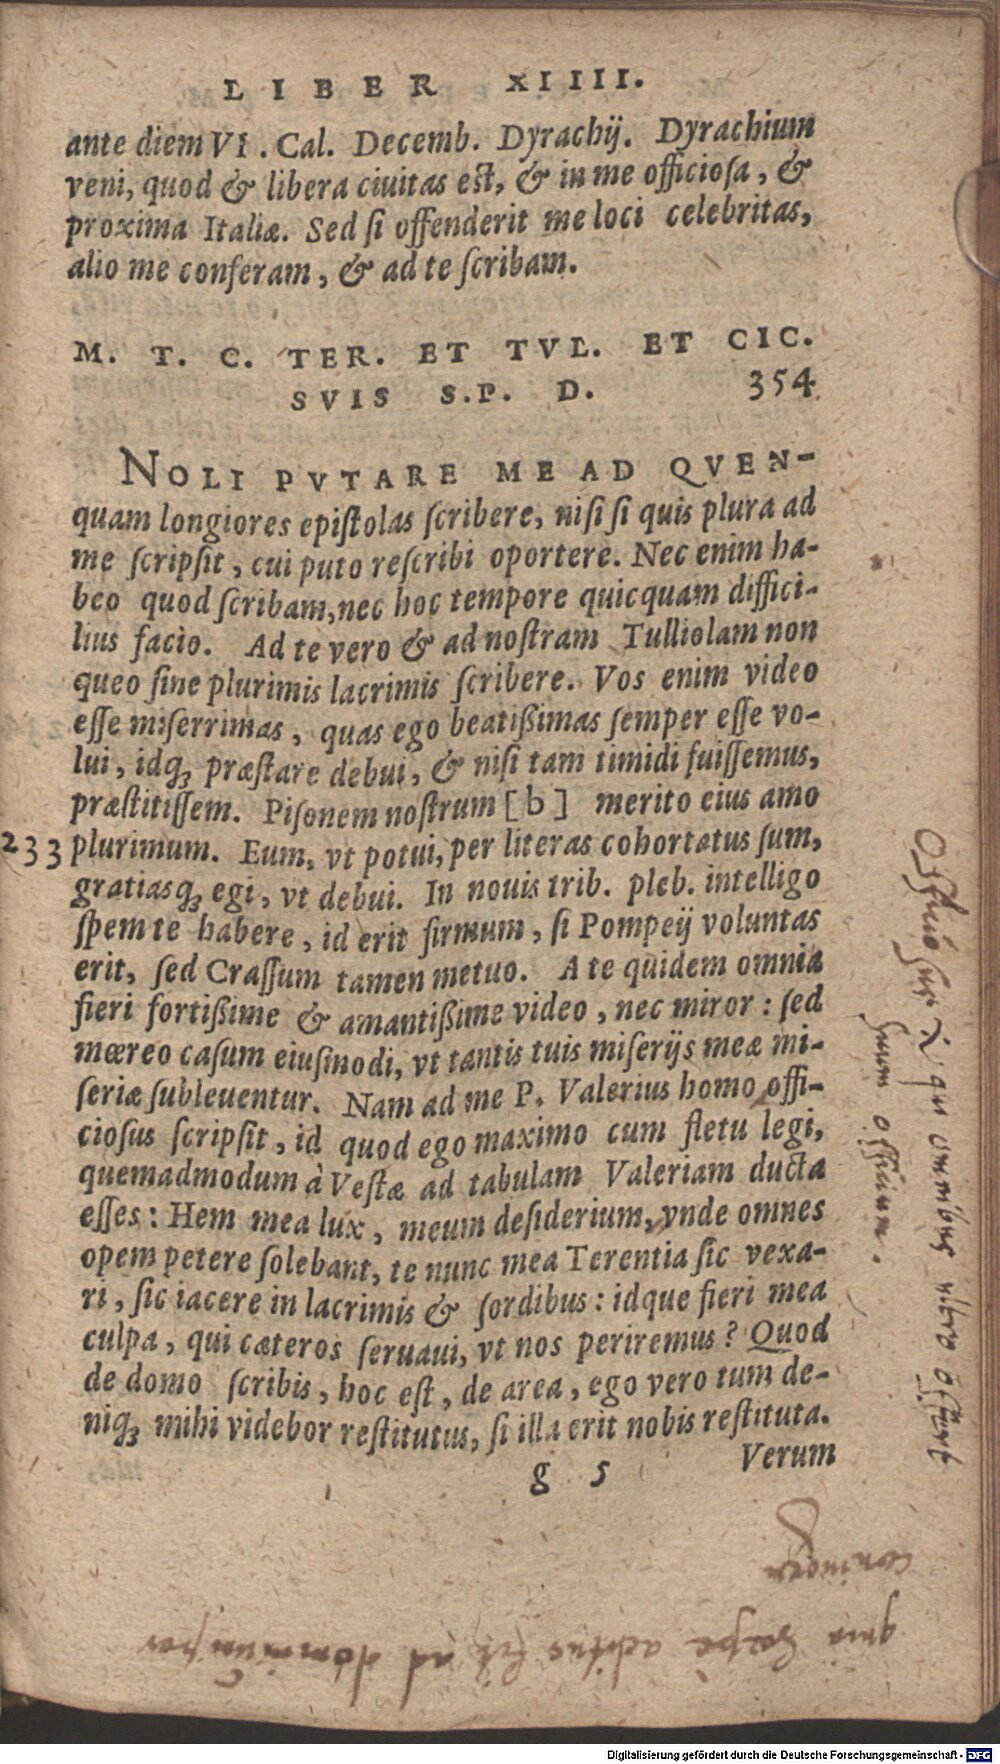 LIBER XIIII.
ante diem VI. Cal. Decemb. Dyrachij. Dyrachium
veni, quod & libera ciuitas est, & in me officiosa, &
proxima Italiæ. Sed si offenderit me loci celebritas,
alio me conferam, & ad te scribam.
M. T. C. TER. ET TVL. ET CIC.
SVIS S.P. D. 354
NOLI PVTARE ME AD QVEN-
quam longiores epistolas scribere, nisi si quis plura ad
me scripsit, cui puto rescribi oportere. Nec enim ha-
beo quod scribam, nec hoc tempore quicquam diffici-
lius facio. Ad te vero & ad nostram Tulliolam non
queo sine plurimis lacrimis scribere. Vos enim video
esse miserrimas, quas ego beatißimas semper esse vo-
lui, idq; præstare debui, & nisi tam timidi fuissemus,
præstitissem. Pisonem nostrum [b] merito eius amo
233 plurimum. Eum, vt potui, per literas cohortatus sum,
gratiasq; egi, vt debui. In nouis trib. pleb. intelligo
spem te habere, id erit firmum, si Pompeij voluntas
erit, sed Crassum tamen metuo. A te quidem omnia
fieri fortißime & amantißime video, nec miror: sed
mœreo casum eiusmodi, vt tantis tuis miserijs meæ mi-
seriæ subleuentur. Nam ad me P. Valerius homo offi-
ciosus scripsit, id quod ego maximo cum fletu legi,
quemadmodum à Vestæ ad tabulam Valeriam ducta
esses: Hem mea lux, meum desiderium, vnde omnes
opem petere solebant, te nunc mea Terentia sic vexa-
ri, sic iacere in lacrimis & sordibus: idque fieri mea
culpa, qui cæteros seruaui, vt nos periremus? Quod
de domo scribis, hoc est, de area, ego vero tum de-
niq; mihi videbor restitutus, si illa erit nobis restituta.
g 5 Verum
qui omnibus ultro offert
suum officium.
Digitalisierung gefördert durch die Deutsche Forschungsgemeinschaft - DFG